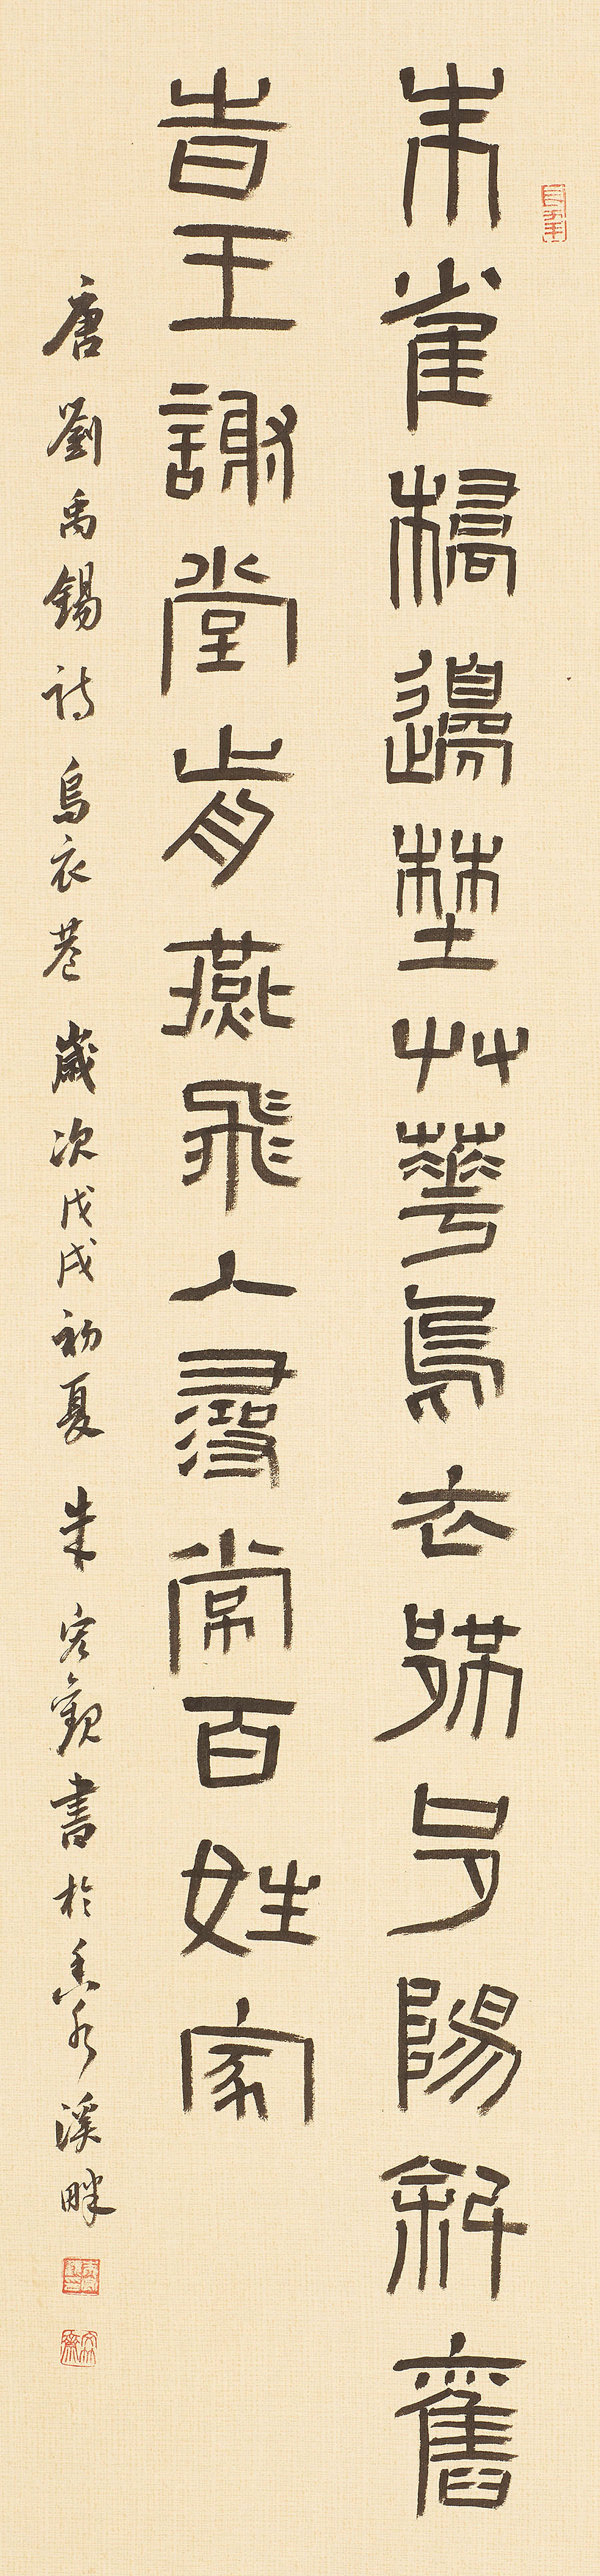 朱雀橋邊埜艸華烏衣巷口夕陽斜舊
旹王謝堂歬燕飛入尋常百姓家
唐劉禹錫詩烏衣巷歲次戊戌初夏朱觀書於香水溪畔